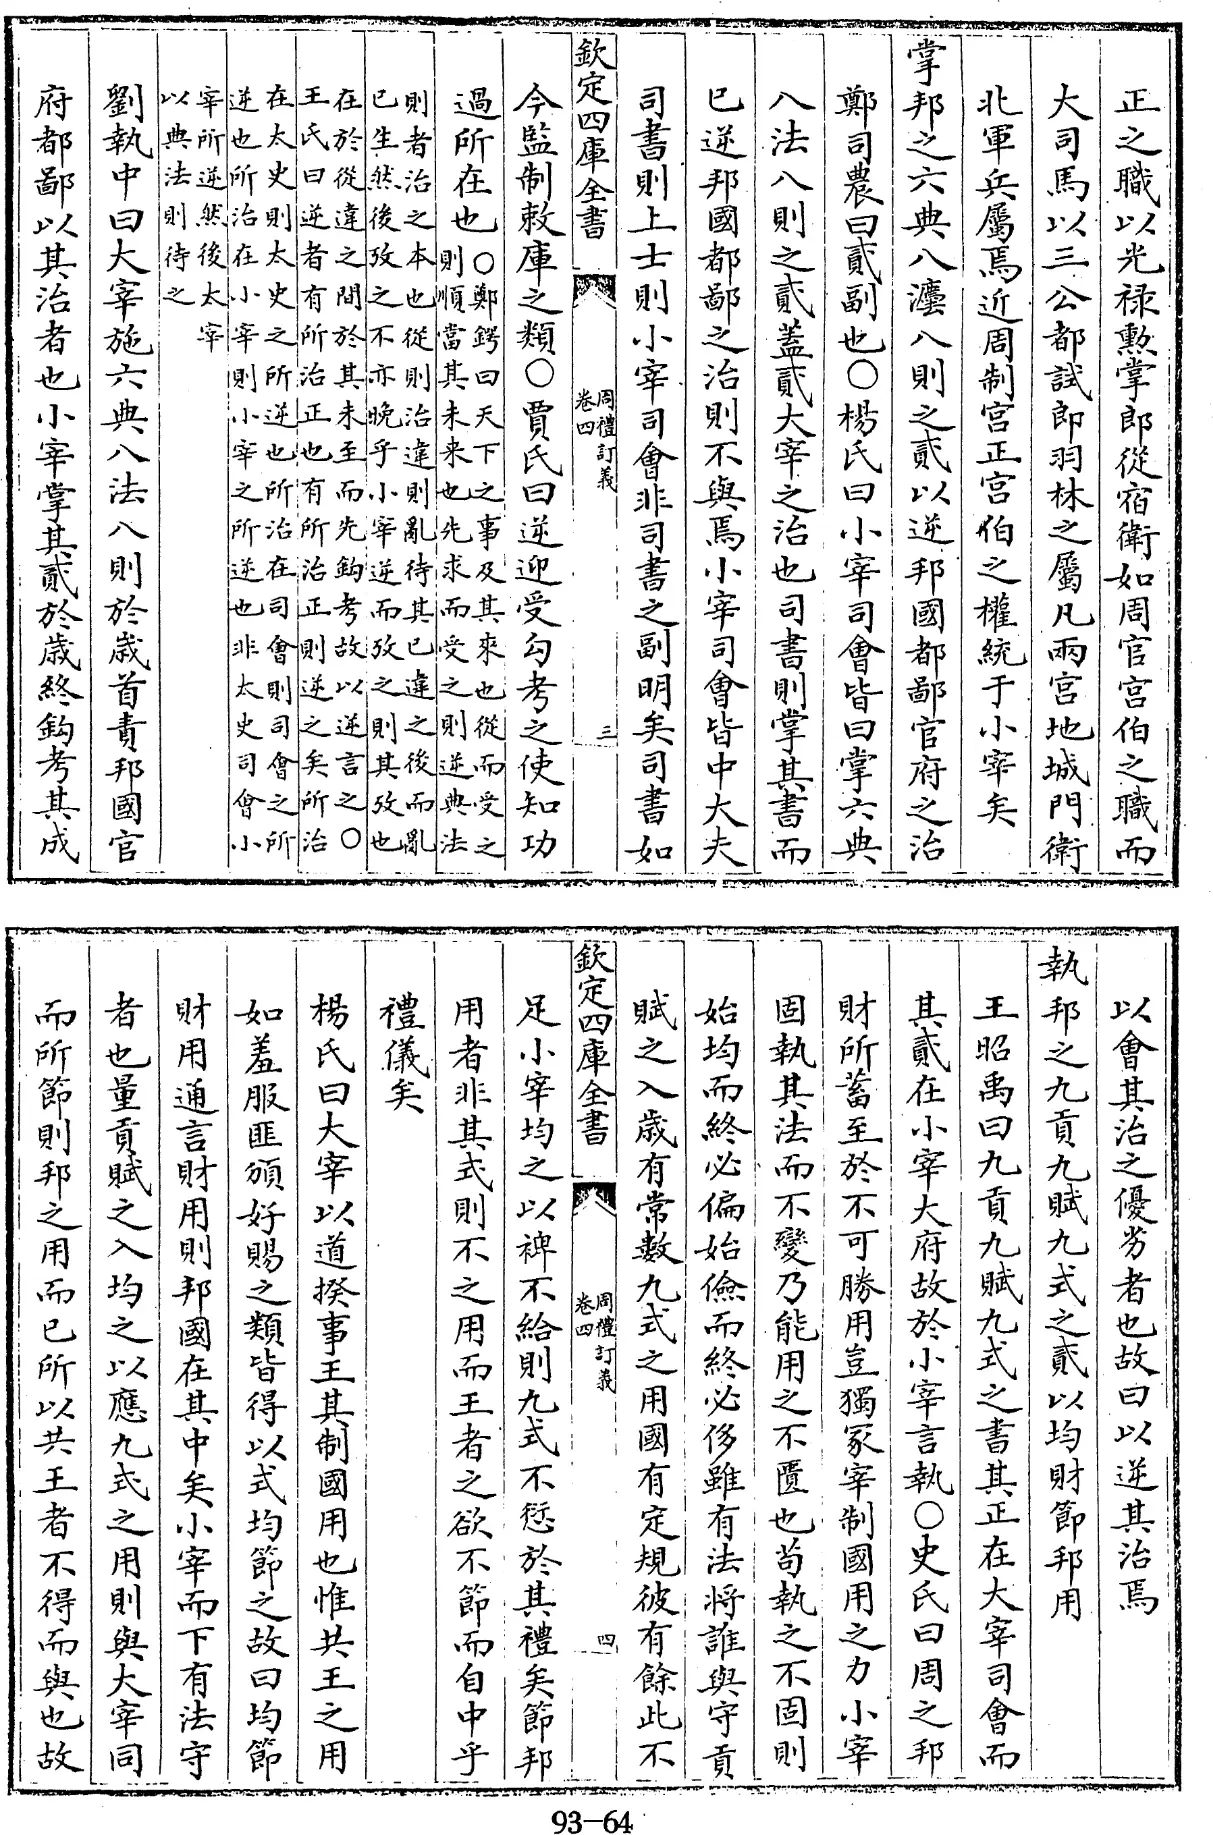 正之職以光禄勲掌郎從宿衛如周官宫伯之職而
大司馬以三公都試郎羽林之屬凡兩宫地城門衛
北軍兵屬焉近周制宫正宫伯之權統于小宰矣
掌邦之六典八灋八則之貳以逆邦國都鄙官府之治
鄭司農曰貳副也○楊氏曰小宰司會皆曰掌六典
八法八則之貳蓋貳大宰之治也司書則掌其書而
已逆邦國都鄙之治則不與焉小宰司會皆中大夫
司書則上士則小宰司會非司書之副明矣司書如
欽定四庫全書
周禮訂義
卷四
三
今監制敕庫之類○賈氏曰逆迎受勾考之使知功
過所在也○鄭鍔曰天下之事及其來也從而受之
則順當其未來也先求而受之則逆典法
則者治之本也從則治違則亂待其已違之後而亂
已生然後攷之不亦晚乎小宰逆而攷之則其攷也
在於從違之間於其未至而先鈎考故以逆言之○
王氏曰逆者有所治正也有所治正則逆之矣所治
在太史則太史之所逆也所治在司會則司會之所
逆也所治在小宰則小宰之所逆也非太史司會小
宰所逆然後太宰
以典法則待之
劉執中曰大宰施六典八法八則於歲首責邦國官
府都鄙以其治者也小宰掌其貳於歲終鈎考其成
以會其治之優劣者也故曰以逆其治焉
執邦之九貢九賦九式之貳以均財節邦用
王昭禹曰九貢九賦九式之書其正在大宰司會而
其貳在小宰大府故於小宰言執○史氏曰周之邦
財所蓄至於不可勝用豈獨冢宰制國用之力小宰
固執其法而不變乃能用之不匱也苟執之不固則
始均而終必偏始儉而終必侈雖有法將誰與守貢
賦之入歲有常數九式之用國有定規彼有餘此不
欽定四庫全書
周禮訂義
卷四
四
足小宰均之以裨不給則九式不愆於其禮矣節邦
用者非其式則不之用而王者之欲不節而自中乎
禮儀矣
楊氏曰大宰以道揆事王其制國用也惟共王之用
如羞服匪頒好賜之類皆得以式均節之故曰均節
財用通言財用則邦國在其中矣小宰而下有法守
者也量貢賦之入均之以應九式之用則與大宰同
而所節則邦之用而已所以共王者不得而與也故
93-64